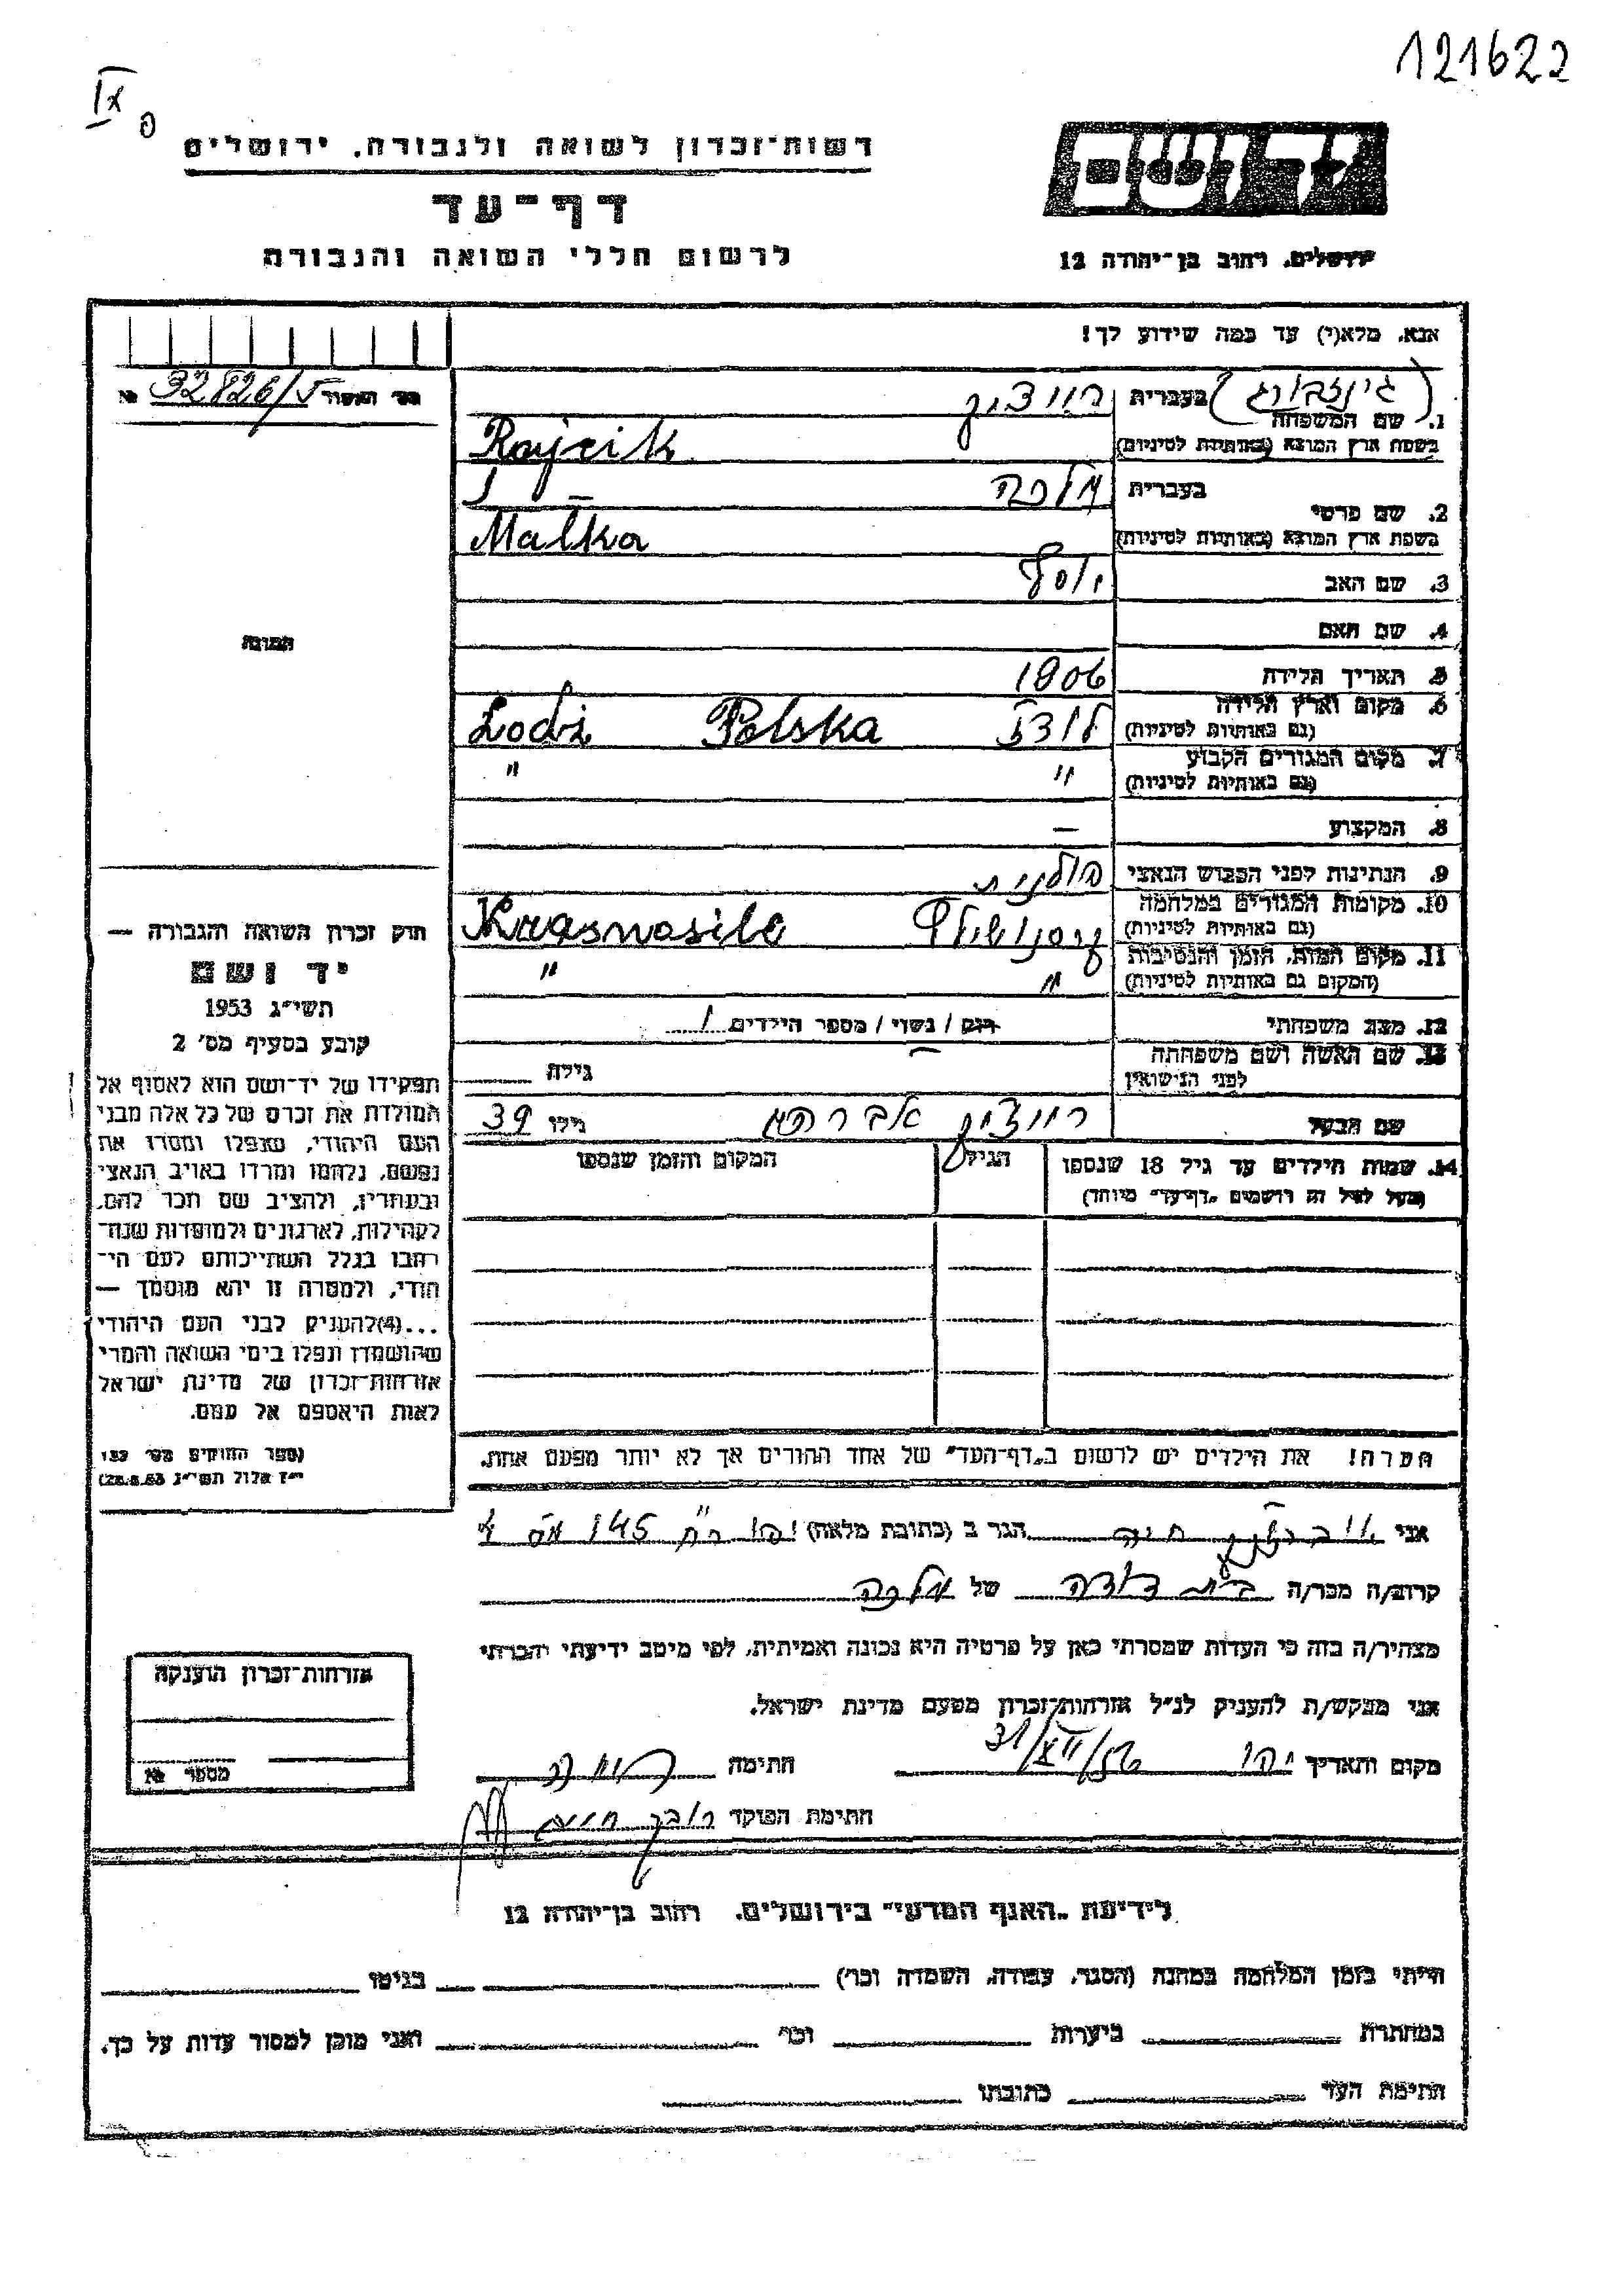 121622
IX
פ
יד ושם
ירושלים, רחוב בן-יהודה 12
רשות-זכרון לשואה ולגבורה, ירושלים
דף-עד
לרשום חללי השואה והגבורה
אנא, מלא(י) עד כמה שידוע לך!
מס' האשור 32826/5 №
1. שם המשפחה בעברית (גינזבורג) רויצ'יק
בשפת ארץ המוצא (באותיות לטיניות) Rajcik
2. שם פרטי בעברית מלכה
בשפת ארץ המוצא (באותיות לטיניות) Malka
3. שם האב יוסף
4. שם האם
5. תאריך הלידה 1906
6. מקום וארץ הלידה (גם באותיות לטיניות) לודז' Polska Lodż
7. מקום המגורים הקבוע (גם באותיות לטיניות) " "
8. המקצוע —
9. הנתינות לפני הכבוש הנאצי פולנית
10. מקומות המגורים במלחמה (גם באותיות לטיניות) Krasnosile
11. מקום המות, הזמן והנסיבות (המקום גם באותיות לטיניות) " "
12. מצב משפחתי רוק / נשוי / מספר הילדים 1
13. שם האשה ושם משפחתה לפני הנישואין — גילה
שם הבעל רויצ'יק אברהם גילו 39
14. שמות הילדים עד גיל 18 שנספו הגיל המקום והזמן שנספו
(מעל לגיל זה רושמים "דף-עד" מיוחד)
הערה! את הילדים יש לרשום ב"דף-העד" של אחד ההורים אך לא יותר מפעם אחת.
התמונה
חוק זכרון השואה והגבורה —
יד ושם
תשי"ג 1953
קובע בסעיף מס' 2
תפקידו של יד-ושם הוא לאסוף אל
המולדת את זכרם של כל אלה מבני
העם היהודי, שנפלו ומסרו את
נפשם, נלחמו ומרדו באויב הנאצי
ובעוזריו, ולהציב שם וזכר להם,
לקהילות, לארגונים ולמוסדות שנח-
רבו בגלל השתייכותם לעם הי-
הודי, ולמטרה זו יהא מוסמך —
...(4) להעניק לבני העם היהודי
שהושמדו ונפלו בימי השואה והמרי
אזרחות-זכרון של מדינת ישראל
לאות היאספם אל עמם.
(ספר החוקים מס' 132
י"ז אלול תשי"ג 28.8.53)
אני חיה הגר ב (כתובת מלאה) 145
קרוב/ה מכר/ה בת דודה של מלכה
מצהיר/ה בזה כי העדות שמסרתי כאן על פרטיה היא נכונה ואמיתית, לפי מיטב ידיעתי והכרתי
אני מבקש/ת להעניק לנ"ל אזרחות-זכרון מטעם מדינת ישראל.
מקום ותאריך יפו 31/XII/56 חתימה
חתימת הפוקד
אזרחות-זכרון הוענקה
מספר №
לידיעת "האגף המדעי" בירושלים, רחוב בן-יהודה 12
הייתי בזמן המלחמה במחנה (הסגר, עבודה, השמדה וכו') בגיטו
במחתרת ביערות וכו' ואני מוכן למסור עדות על כך.
חתימת העד כתובתו